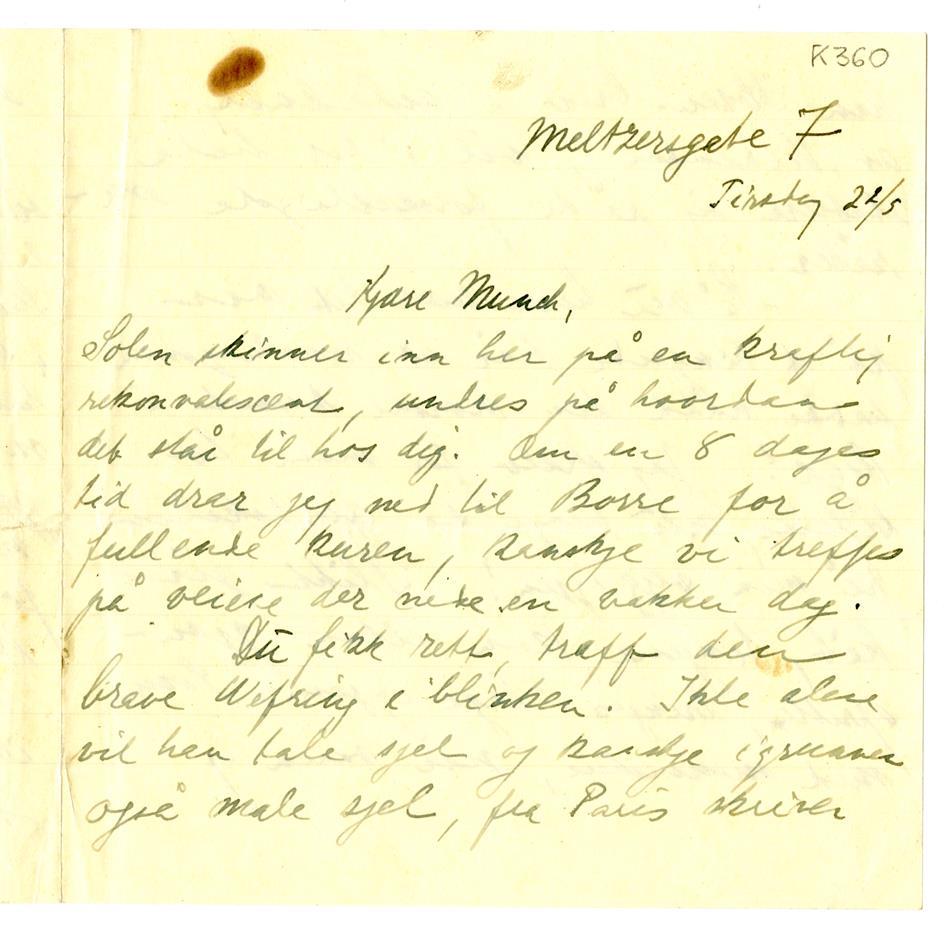 K360
Meltzersgate 7
Tirsdag 22/5
Kjære Munch,
Solen skinner inn her på en kraftig
rekonvalescent, undres på hvordan
det står til hos dig. Om en 8 dages
tid drar jeg ned til Borre for å
fullende kuren, kanskje vi treffes
på veiene der nede en vakker dag.
Du fikk rett, traff den
brave Wefring i blinken. Ikke alene
vil han tale sjel og kanskje igrunnen
også male sjel, fra Paris skriver